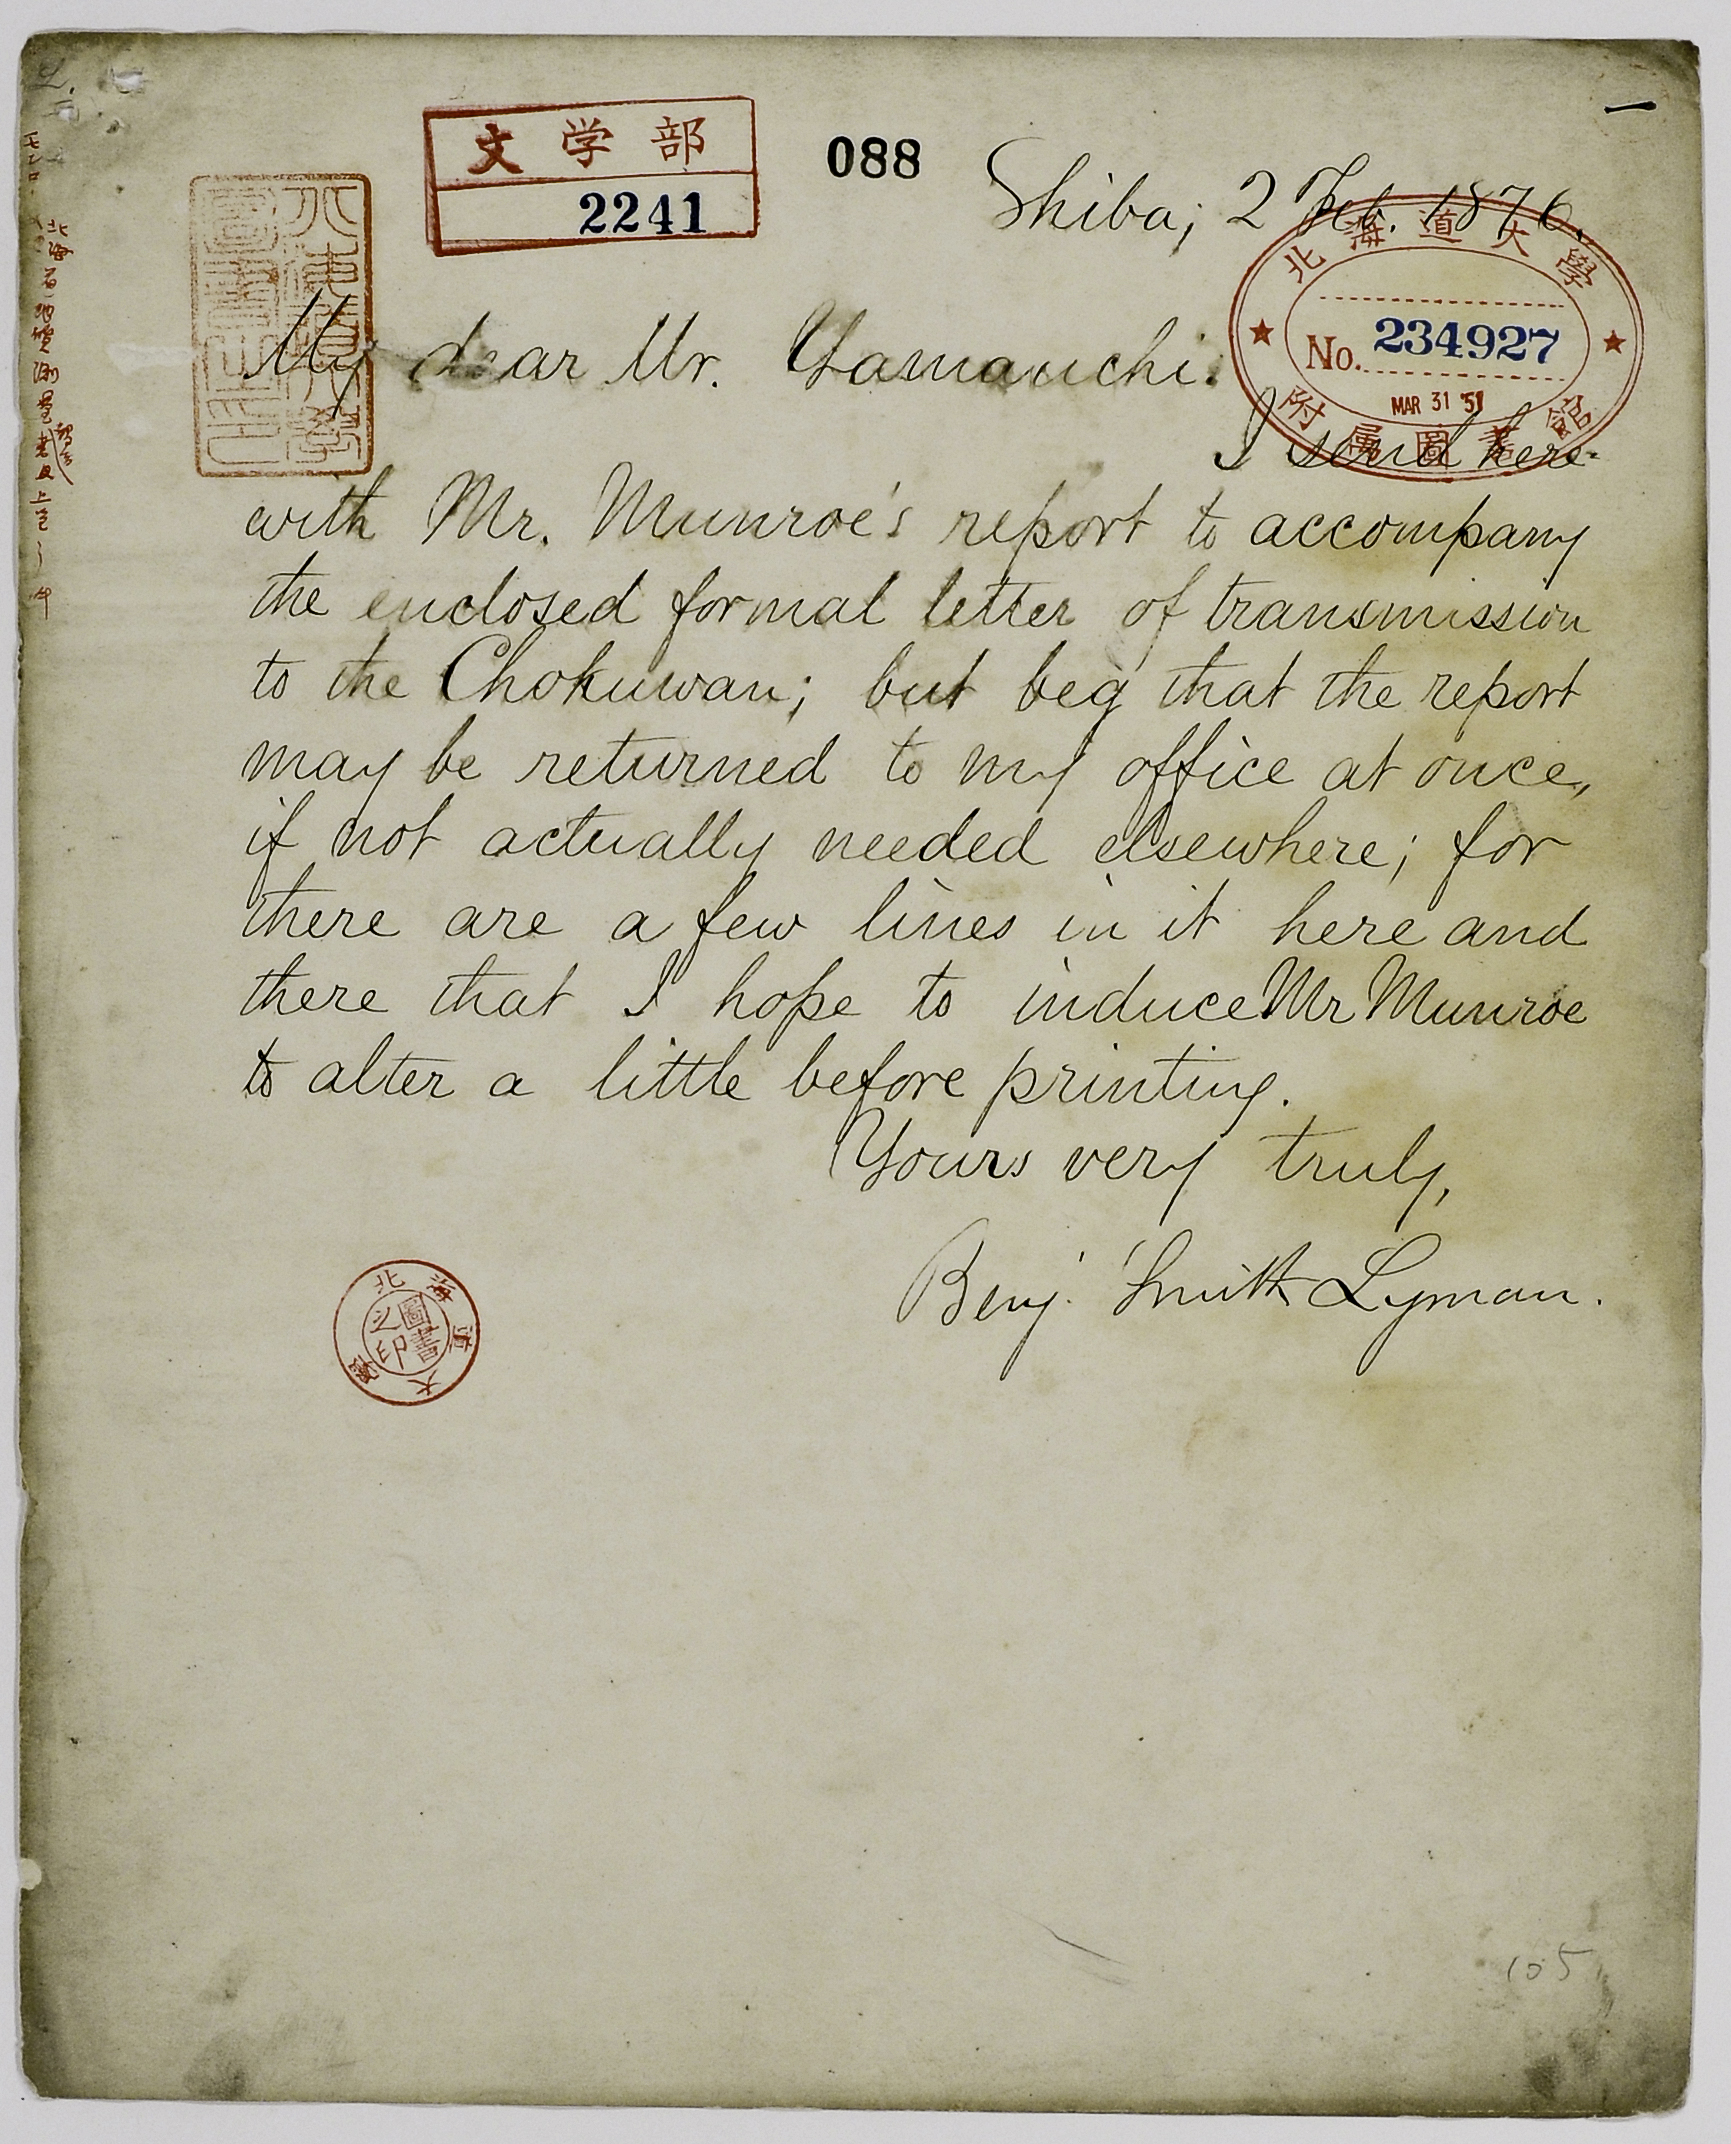 文学部
2241
088
Shiba; 2 Feb. 1876.
北海道大學
No. 234927
MAR 31 '51
附属圖書館
My dear Mr. Yamauchi:
I send here-
with Mr. Munroe's report to accompany
the enclosed formal letter of transmission
to the Chokuwan; but beg that the report
may be returned to my office at once,
if not actually needed elsewhere; for
there are a few lines in it here and
there that I hope to induce Mr Munroe
to alter a little before printing.
Yours very truly,
Benj. Smith Lyman.
北海道大學
圖書之印
105